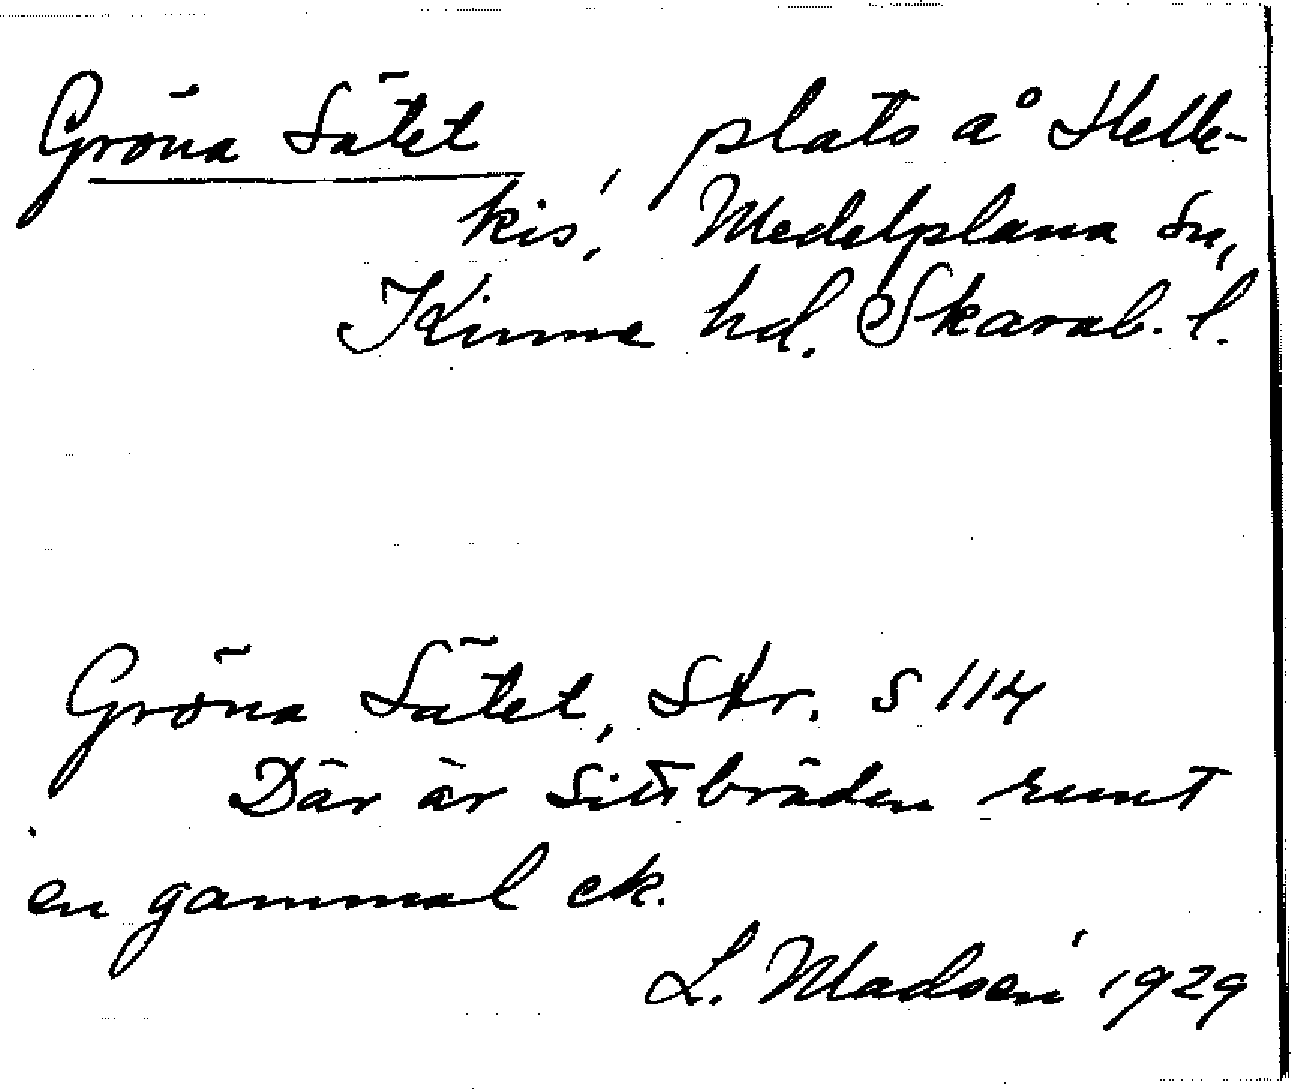 Gröna Sätet, plats å Helle-
kis, Medelplana sn,
Kinne hd. Skarab. l.
Gröna Sätet, Str. S 114
Där är sittbräden runt
en gammal ek.
L. Madsén 1929